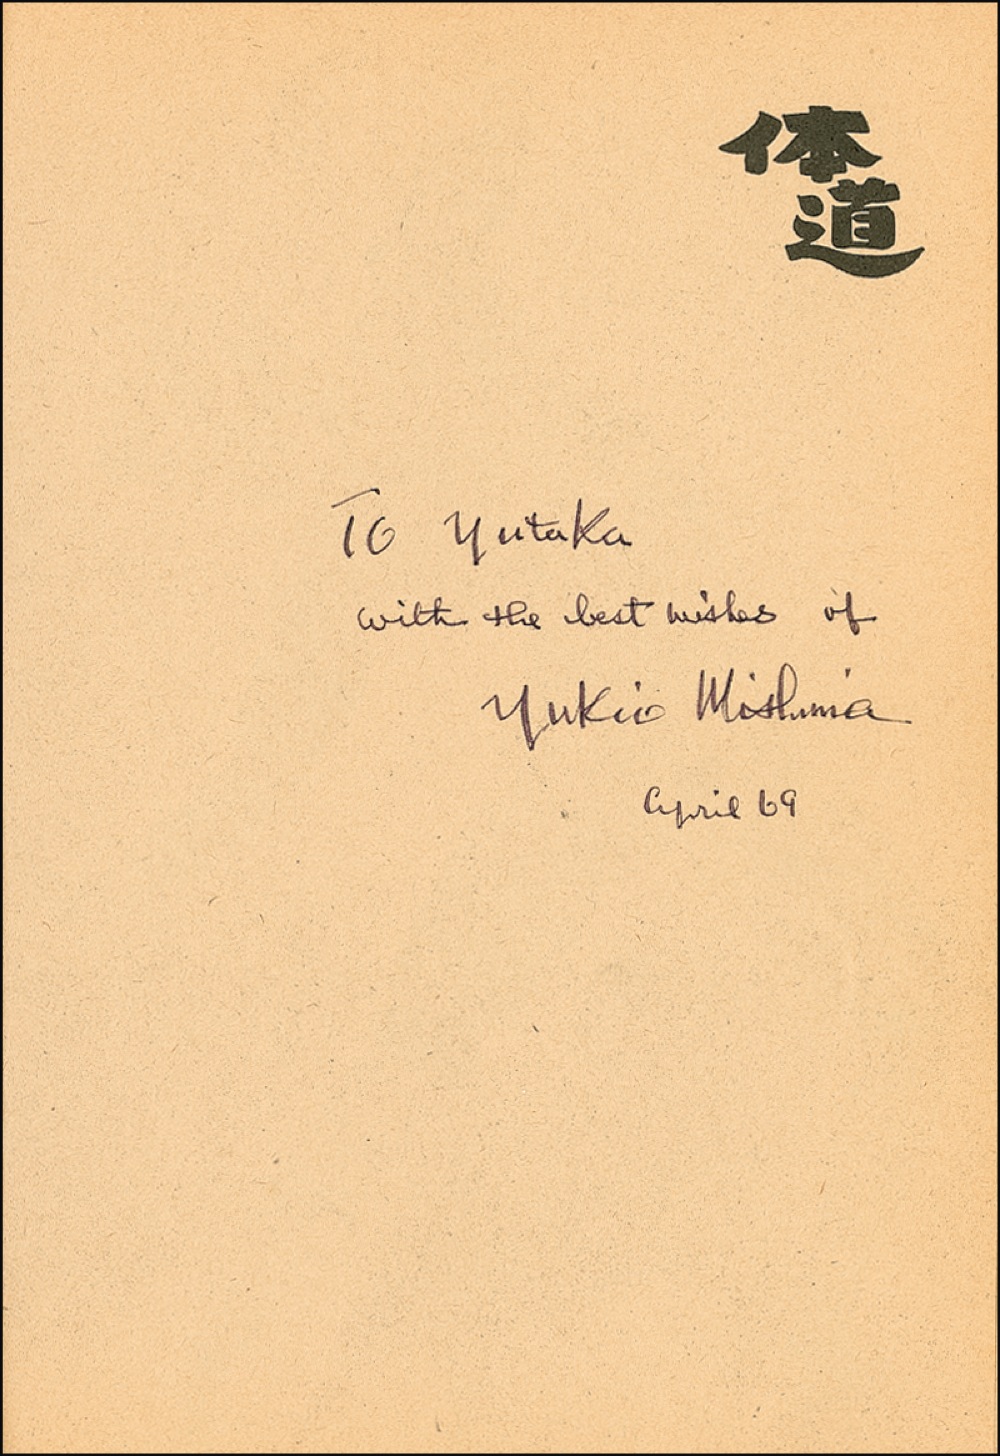 体道
To Yutaka
with the best wishes of
Yukio Mishima
April 69